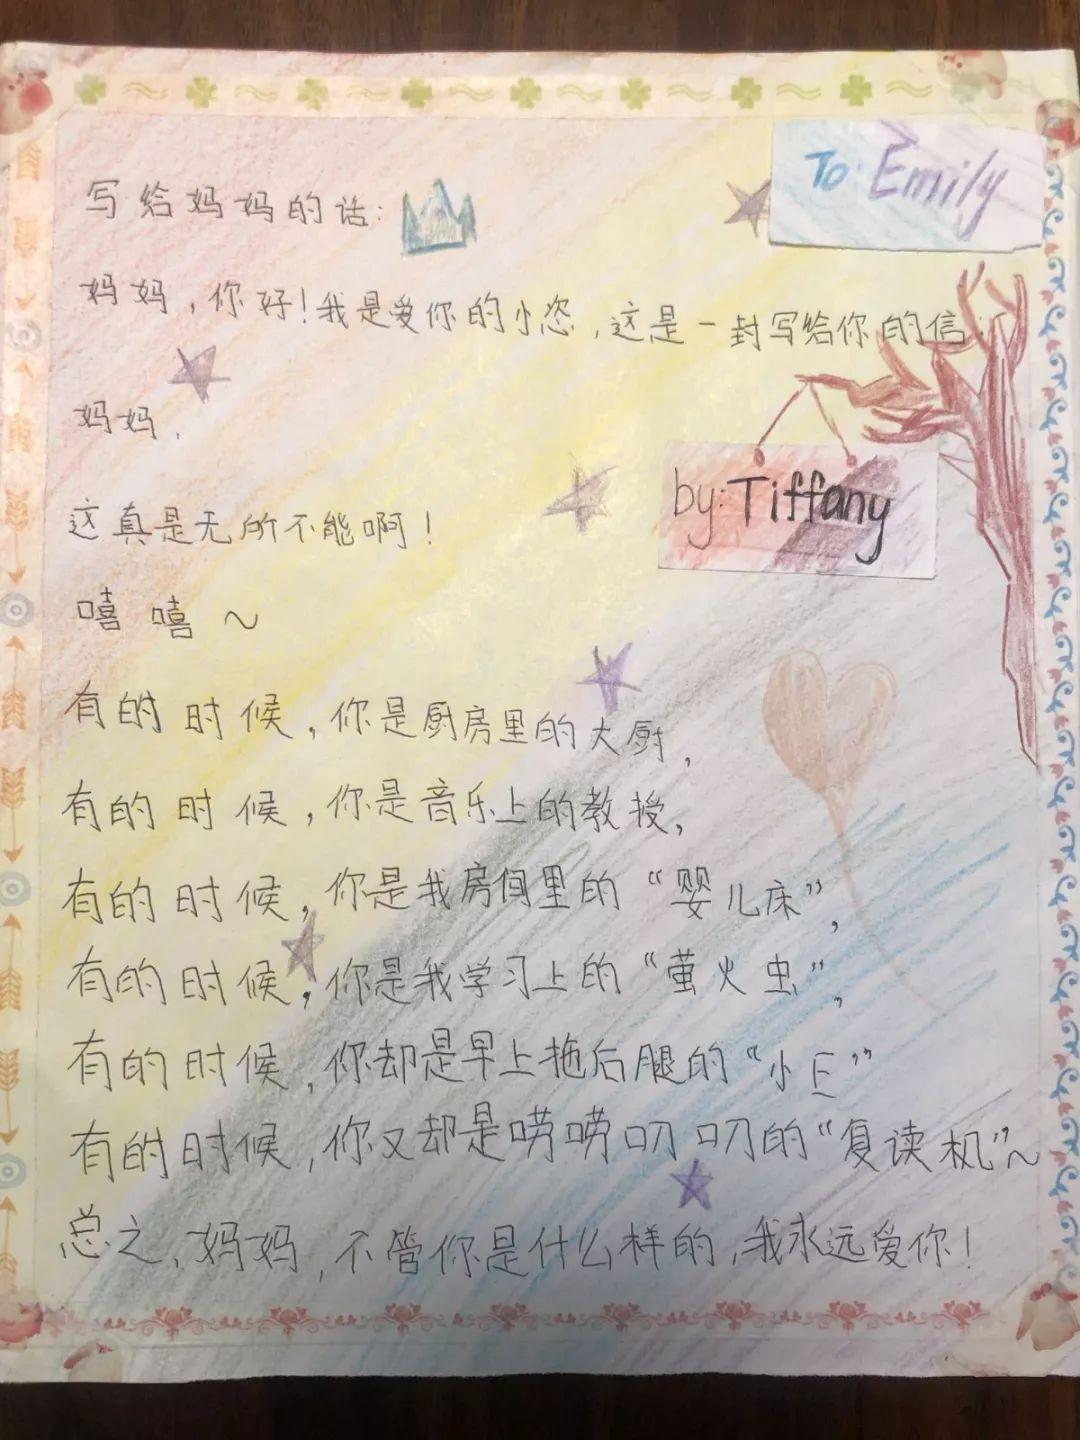 To: Emily
写给妈妈的话:
妈妈,你好!我是爱你的小恣,这是一封写给你的信:
妈妈,
by: Tiffany
这真是无所不能啊!
嘻嘻~
有的时候,你是厨房里的大厨,
有的时候,你是音乐上的教授,
有的时候,你是我房间里的“婴儿床”,
有的时候,你是我学习上的“萤火虫”,
有的时候,你却是早上拖后腿的“小E”
有的时候,你又却是唠唠叨叨的“复读机”~
总之,妈妈,不管你是什么样的,我永远爱你!